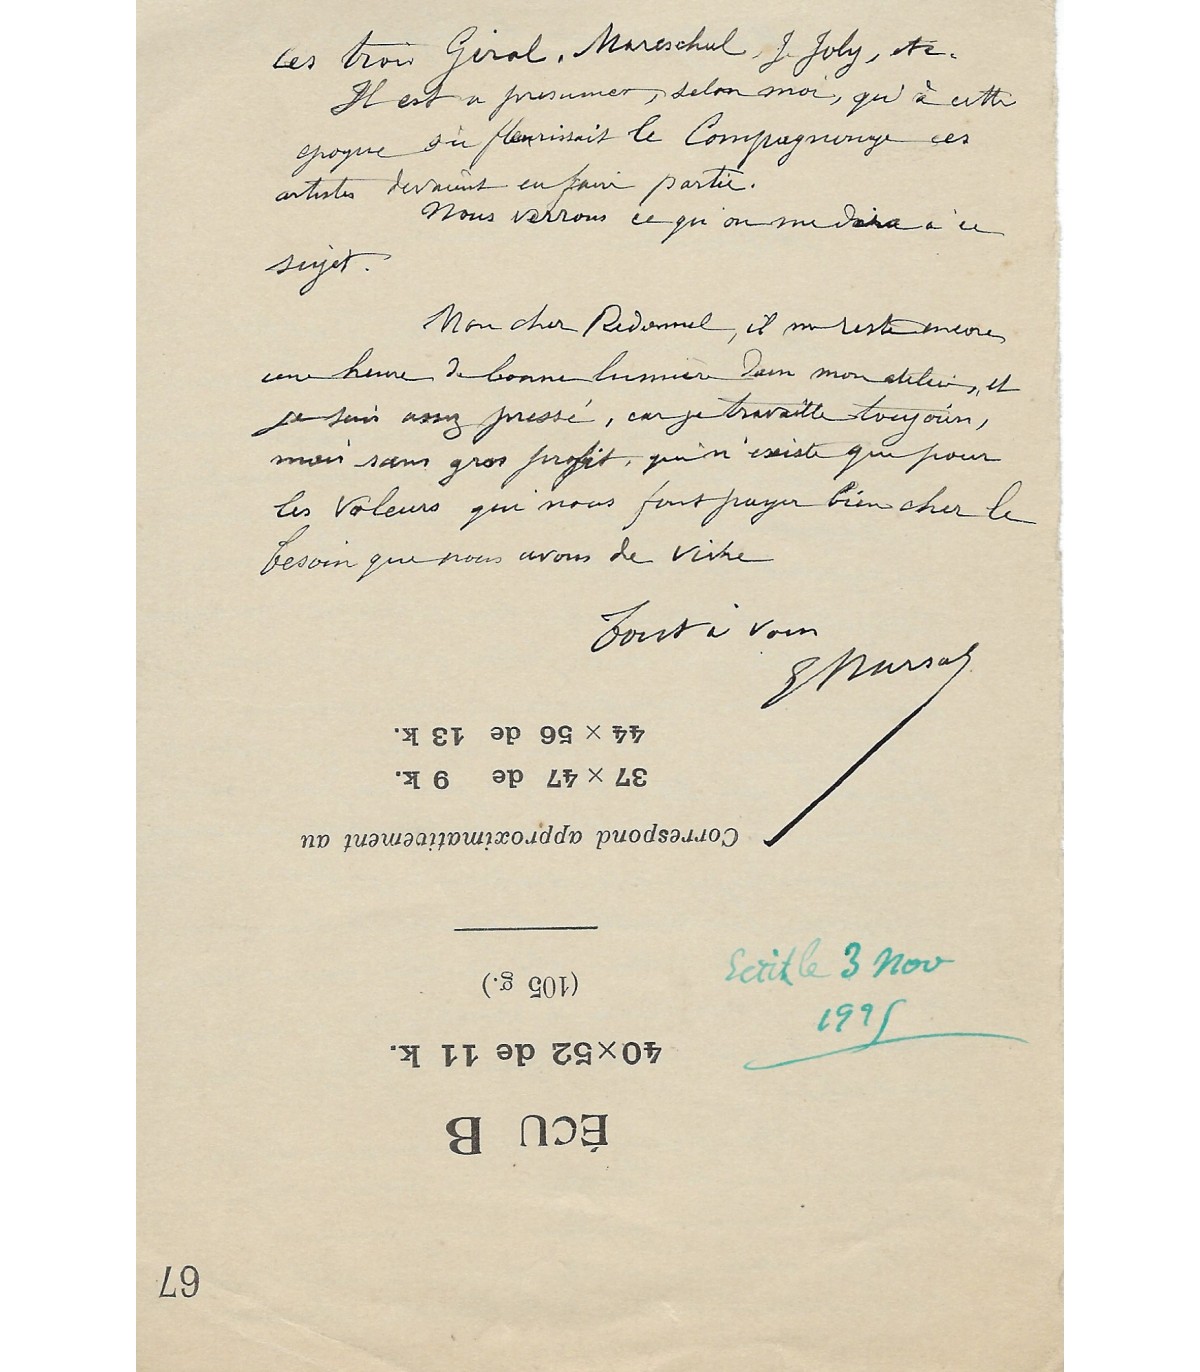 ces trois Giral, Mareschal, J. Joly, etc.
Il est a presumer, selon moi, qu'à cette
epoque où fleurissait le Compagnonage ces
artistes devaient en faire partie.
Nous verrons ce qu'on me dira à ce
sujet.
Mon cher Redonnel, il me reste encore
une heure de bonne lumière dans mon atelier, et
je suis assez pressé, car je travaille toujours,
mais sans gros profit, qui n'existe que pour
les voleurs qui nous font payer bien cher le
besoin que nous avons de vivre
Tout à vous
E Marsal
44 × 56 de 13 k.
37 × 47 de 9 k.
Correspond approximativement au
(105 g.)
Ecrit le 3 Nov
40×52 de 11 k.
ÉCU B
67